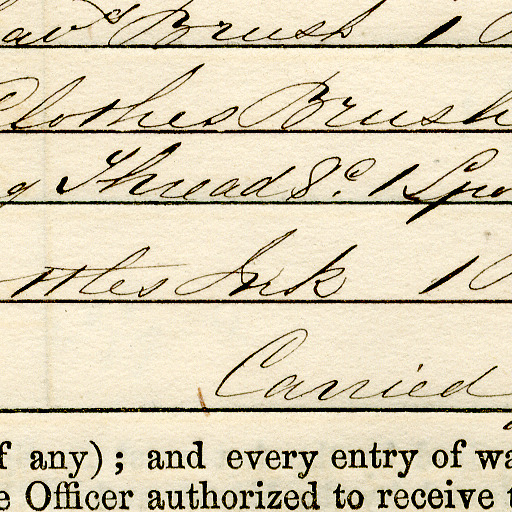 Brush 1
Clothes Brush
Thread &c. 1 Spo
ttles Ink 1
Carried
f any); and every entry of wa
e Officer authorized to receive t